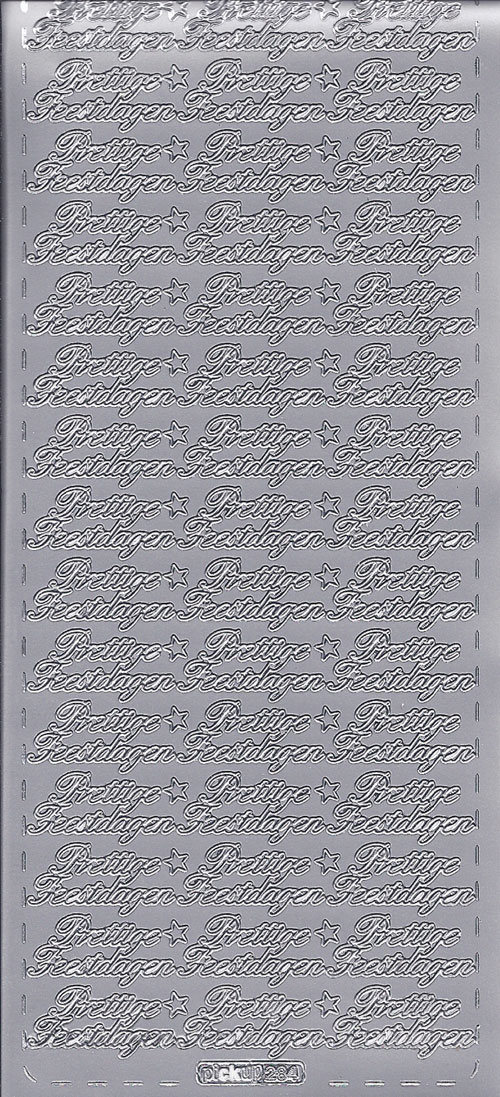 Prettige Prettige Prettige
Feestdagen Feestdagen Feestdagen
Prettige Prettige Prettige
Feestdagen Feestdagen Feestdagen
Prettige Prettige Prettige
Feestdagen Feestdagen Feestdagen
Prettige Prettige Prettige
Feestdagen Feestdagen Feestdagen
Prettige Prettige Prettige
Feestdagen Feestdagen Feestdagen
Prettige Prettige Prettige
Feestdagen Feestdagen Feestdagen
Prettige Prettige Prettige
Feestdagen Feestdagen Feestdagen
Prettige Prettige Prettige
Feestdagen Feestdagen Feestdagen
Prettige Prettige Prettige
Feestdagen Feestdagen Feestdagen
Prettige Prettige Prettige
Feestdagen Feestdagen Feestdagen
Prettige Prettige Prettige
Feestdagen Feestdagen Feestdagen
Prettige Prettige Prettige
Feestdagen Feestdagen Feestdagen
Prettige Prettige Prettige
Feestdagen Feestdagen Feestdagen
Prettige Prettige Prettige
Feestdagen Feestdagen Feestdagen
Prettige Prettige Prettige
Feestdagen Feestdagen Feestdagen
pickup 284